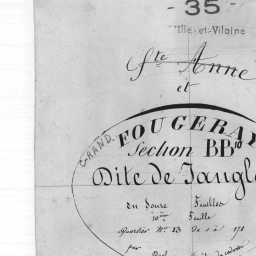 - 35 -
Ille-et-Vilaine
Ste Anne
et
GRAND FOUGERAY
Section BBis
Dite de Jangl
en Douze Feuilles
10me Feuille
Quartier No. 13 De 1 à 171
par